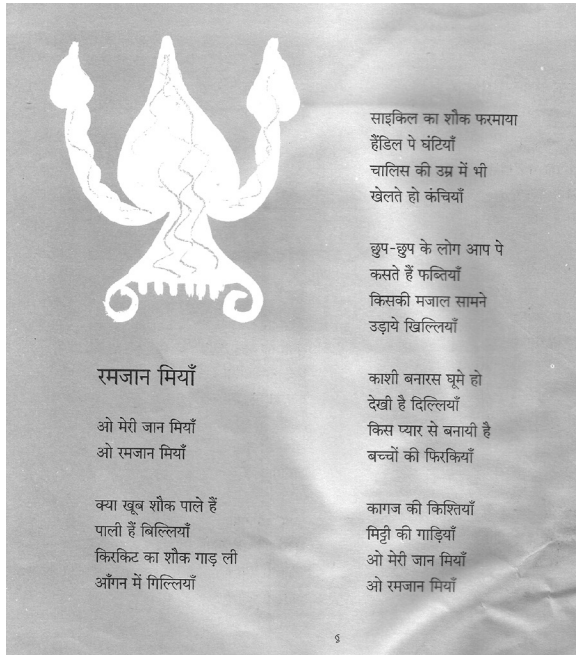 रमजान मियाँ
ओ मेरी जान मियाँ
ओ रमजान मियाँ
क्या खूब शौक पाले हैं
पाली हैं बिल्लियाँ
किरकिट का शौक गाड़ ली
आँगन में गिल्लियाँ
साइकिल का शौक फरमाया
हैंडिल पे घंटियाँ
चालिस की उम्र में भी
खेलते हो कंचियाँ
छुप-छुप के लोग आप पे
कसते हैं फब्तियाँ
किसकी मजाल सामने
उड़ाये खिल्लियाँ
काशी बनारस घूमे हो
देखी है दिल्लियाँ
किस प्यार से बनायी है
बच्चों की फिरकियाँ
कागज की किश्तियाँ
मिट्टी की गाड़ियाँ
ओ मेरी जान मियाँ
ओ रमजान मियाँ